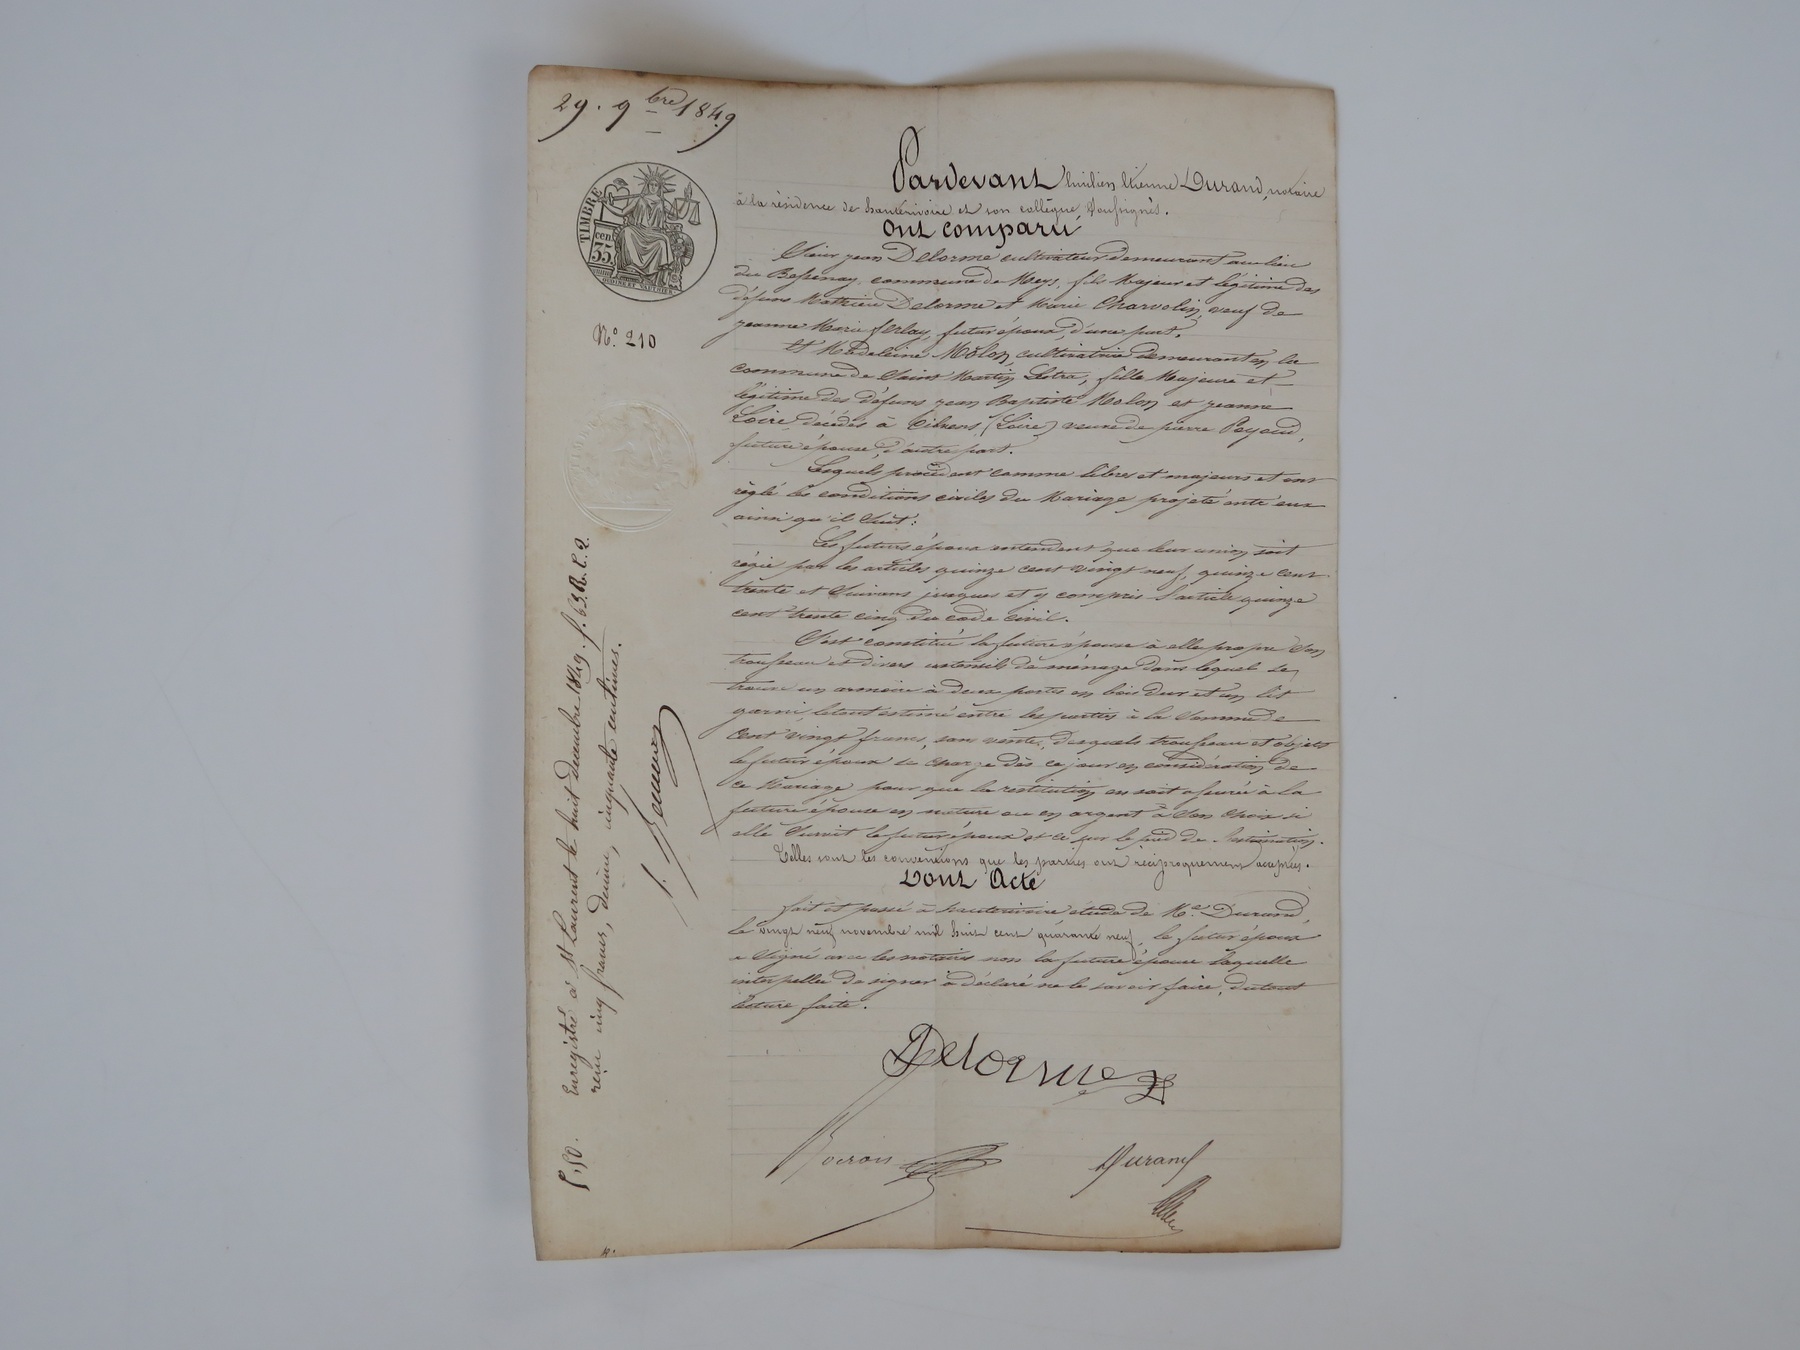 29. 9bre 1849
TIMBRE
35 cen.
N.º 210
Pardevant Etienne Durand, notaire
à la résidence de hauterivoire et son collègue Soussignés.
Ont comparu
Sieur jean Delorme cultivateur demeurant au lieu
du Bessenay, commune de Meys, fils Majeur et légitime des
défuns Mathieu Delorme et Marie Charvolin, veuf de
jeanne Marie ferlay, futur époux, d'une part.
Et Madeleine Molon, cultivatrice demeurant en la
commune de Saint Martin Lestra, fille Majeure et
légitime des défuns jean Baptiste Molon et jeanne
Loire, décédés à Civens (Loire) veuve de pierre
future épouse, d'autre part.
Lesquels procédant comme libres et majeurs et ont
réglé les conditions civiles du Mariage projeté entr'eux
ainsi qu'il Suit :
Les futurs époux entendent que leur union soit
régie par les articles quinze cent vingt neuf, quinze cent
trente et Suivans jusques et y compris l'article quinze
cent trente cinq du code civil.
S'est constitué la future épouse à elle propre Son
trousseau et divers ustensils de ménage dans lequel se
trouve un armoire à deux portes en bois dur et un lit
garni, le tout estimé entre les parties à la Somme de
Cent vingt francs, sans vente, desquels trousseau et objets
le futur époux se charge dès ce jour en considération de
ce Mariage pour que la restitution en soit assurée à la
future épouse en nature ou en argent à Son choix si
elle Survit le futur époux et ce sur le pied de l'estimation.
Telles sont les conventions que les parties ont réciproquement acceptées.
Dont Acte
fait et passé à hauterivoire étude de Me Durand,
le vingt neuf novembre mil huit cent quarante neuf, le futur époux
a Signé avec les notaires non la future épouse laquelle
interpellée de signer a déclaré ne le savoir faire, du tout
lecture faite.
Delorme
Durand
Enregistré à St Laurent le huit décembre 1849. f. 63. R. C. 2.
reçu cinq francs, décime, cinquante centimes.
5,50.